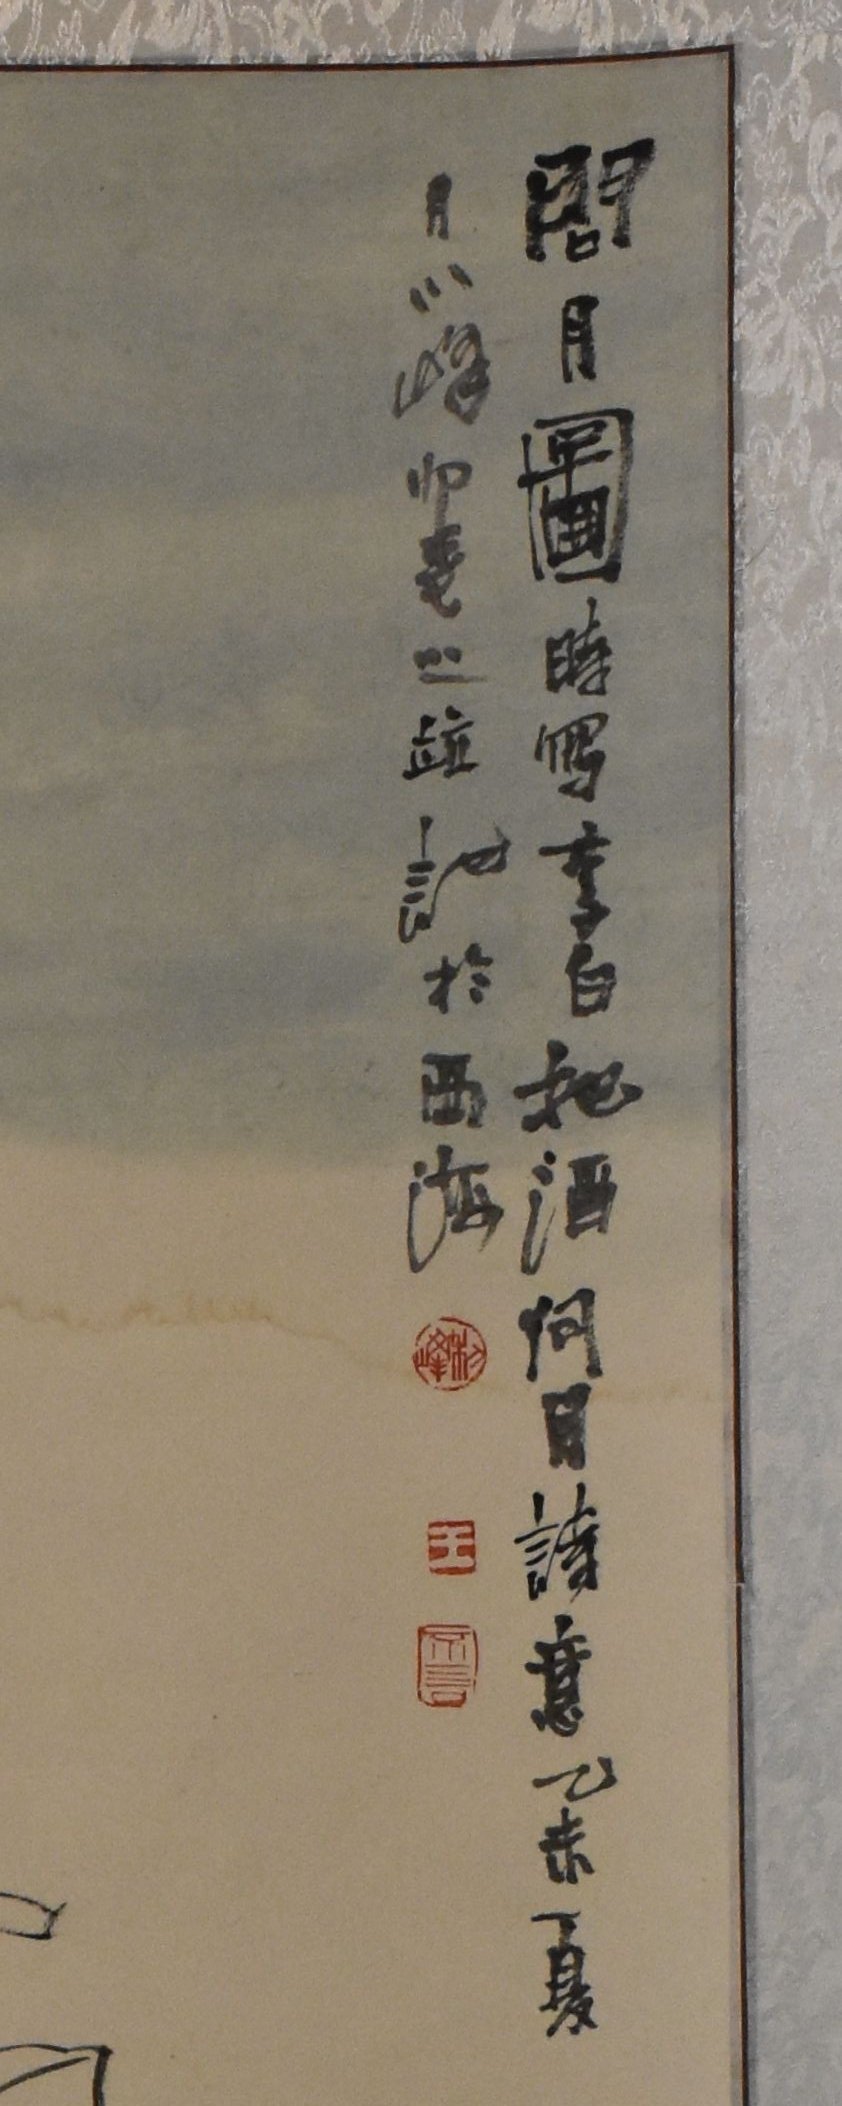 問月圖時寫李白把酒問月詩意乙未夏
月小峰印選之並記於西海
王